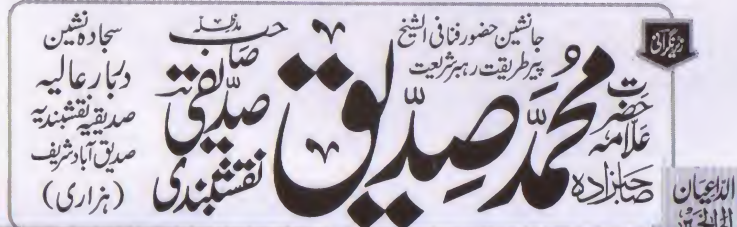 زیر نگرانی
جانشین حضور فنا فی الشیخ
پیر طریقت رہبر شریعت
حضرت علامہ صاحبزادہ
محمد صدیق صدیقی نقشبندی صاحب مدظلہ
سجادہ نشین
دربار عالیہ
صدیقیہ نقشبندیہ
صدیق آباد شریف
(ہزاری)
الداعیان
الی الخیر